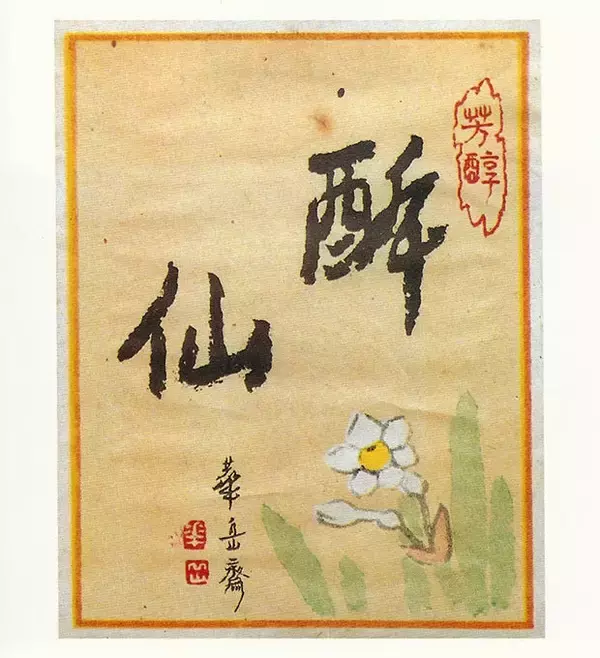 芳醇
酔仙
華岳齋